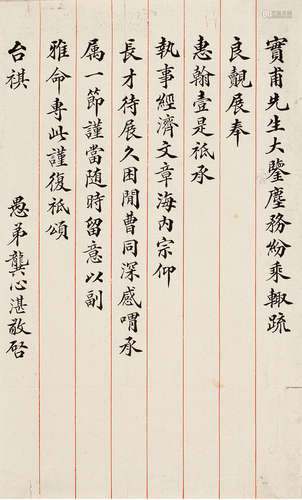 實甫先生大鑒塵務紛乘輙疏
良覿展奉
惠翰壹是祗承
執事經濟文章海內宗仰
長才待展久困閒曹同深感喟承
属一節謹當随時留意以副
雅命專此謹復祇頌
台祺
愚弟龔心湛敬啓